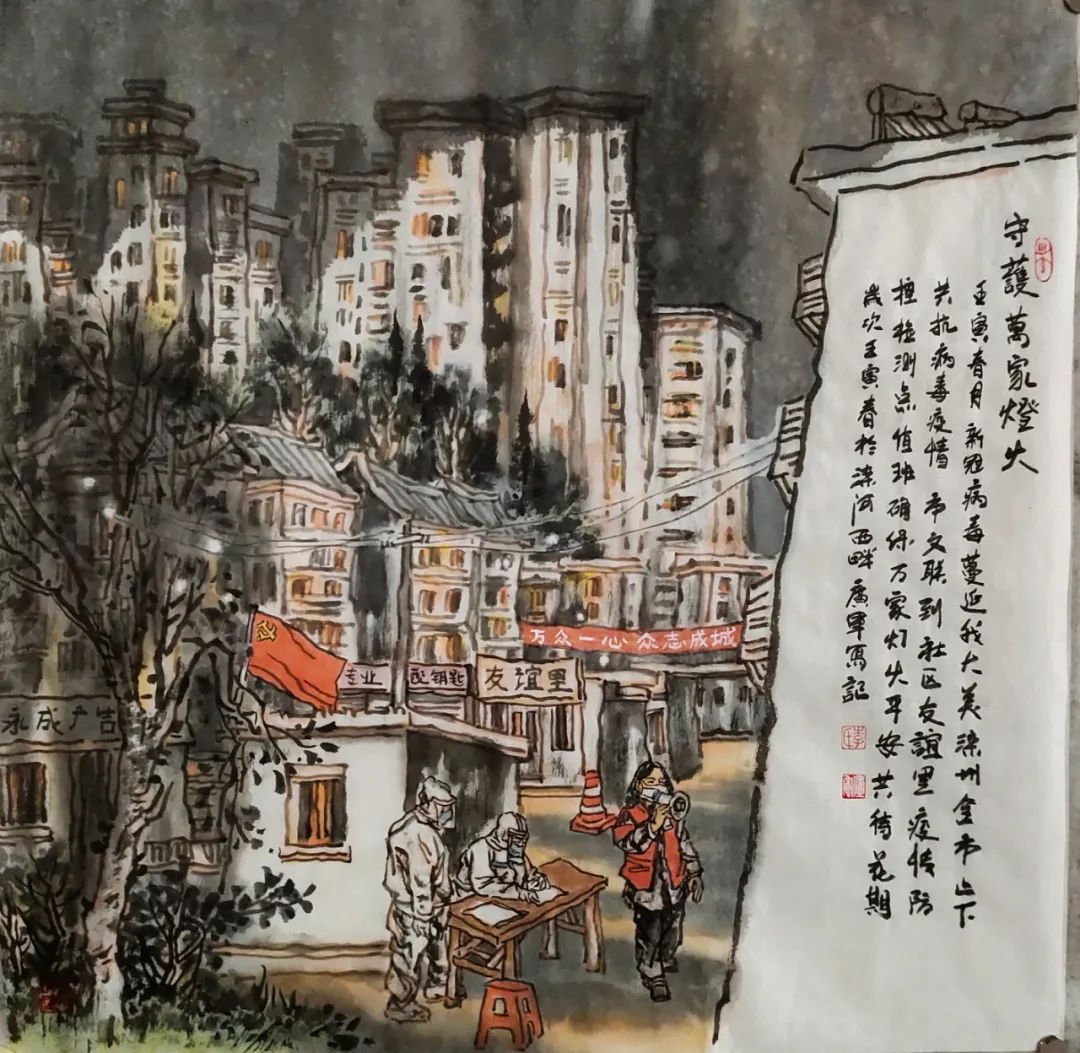 守護萬家燈火
壬寅春月 新冠病毒蔓延我大美滦州全市上下
共抗病毒疫情 市文联到社区友誼里疫情防
控检测点值班确保万家灯火平安共待花期
歲次壬寅春於滦河西畔廣軍寫記
万众一心 众志成城
专业
配钥匙
友谊里
永成广告